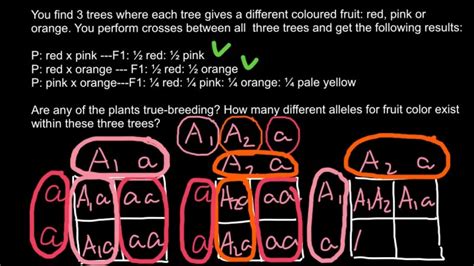 You find 3 trees where each tree gives a different coloured fruit: red, pink or
orange. You perform crosses between all three trees and get the following results:
P: red x pink ---F1: ½ red: ½ pink
P: red x orange --- F1: ½ red: ½ orange
P: pink x orange---F1: ¼ red: ¼ pink: ¼ orange: ¼ pale yellow
Are any of the plants true-breeding? How many different alleles for fruit color exist
within these three trees?
A₁ A₂ a
A₁ a A₂ a A₂ a
a A₁a aa a A₂a aa A₁ A₁A₂ A₁a
a A₁a aa a A₂a aa a